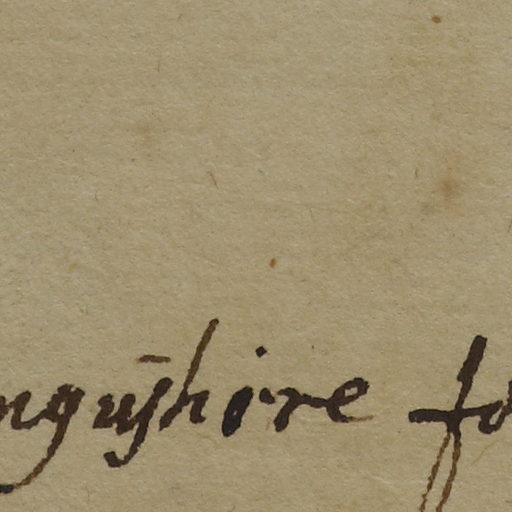 ngūshire fo